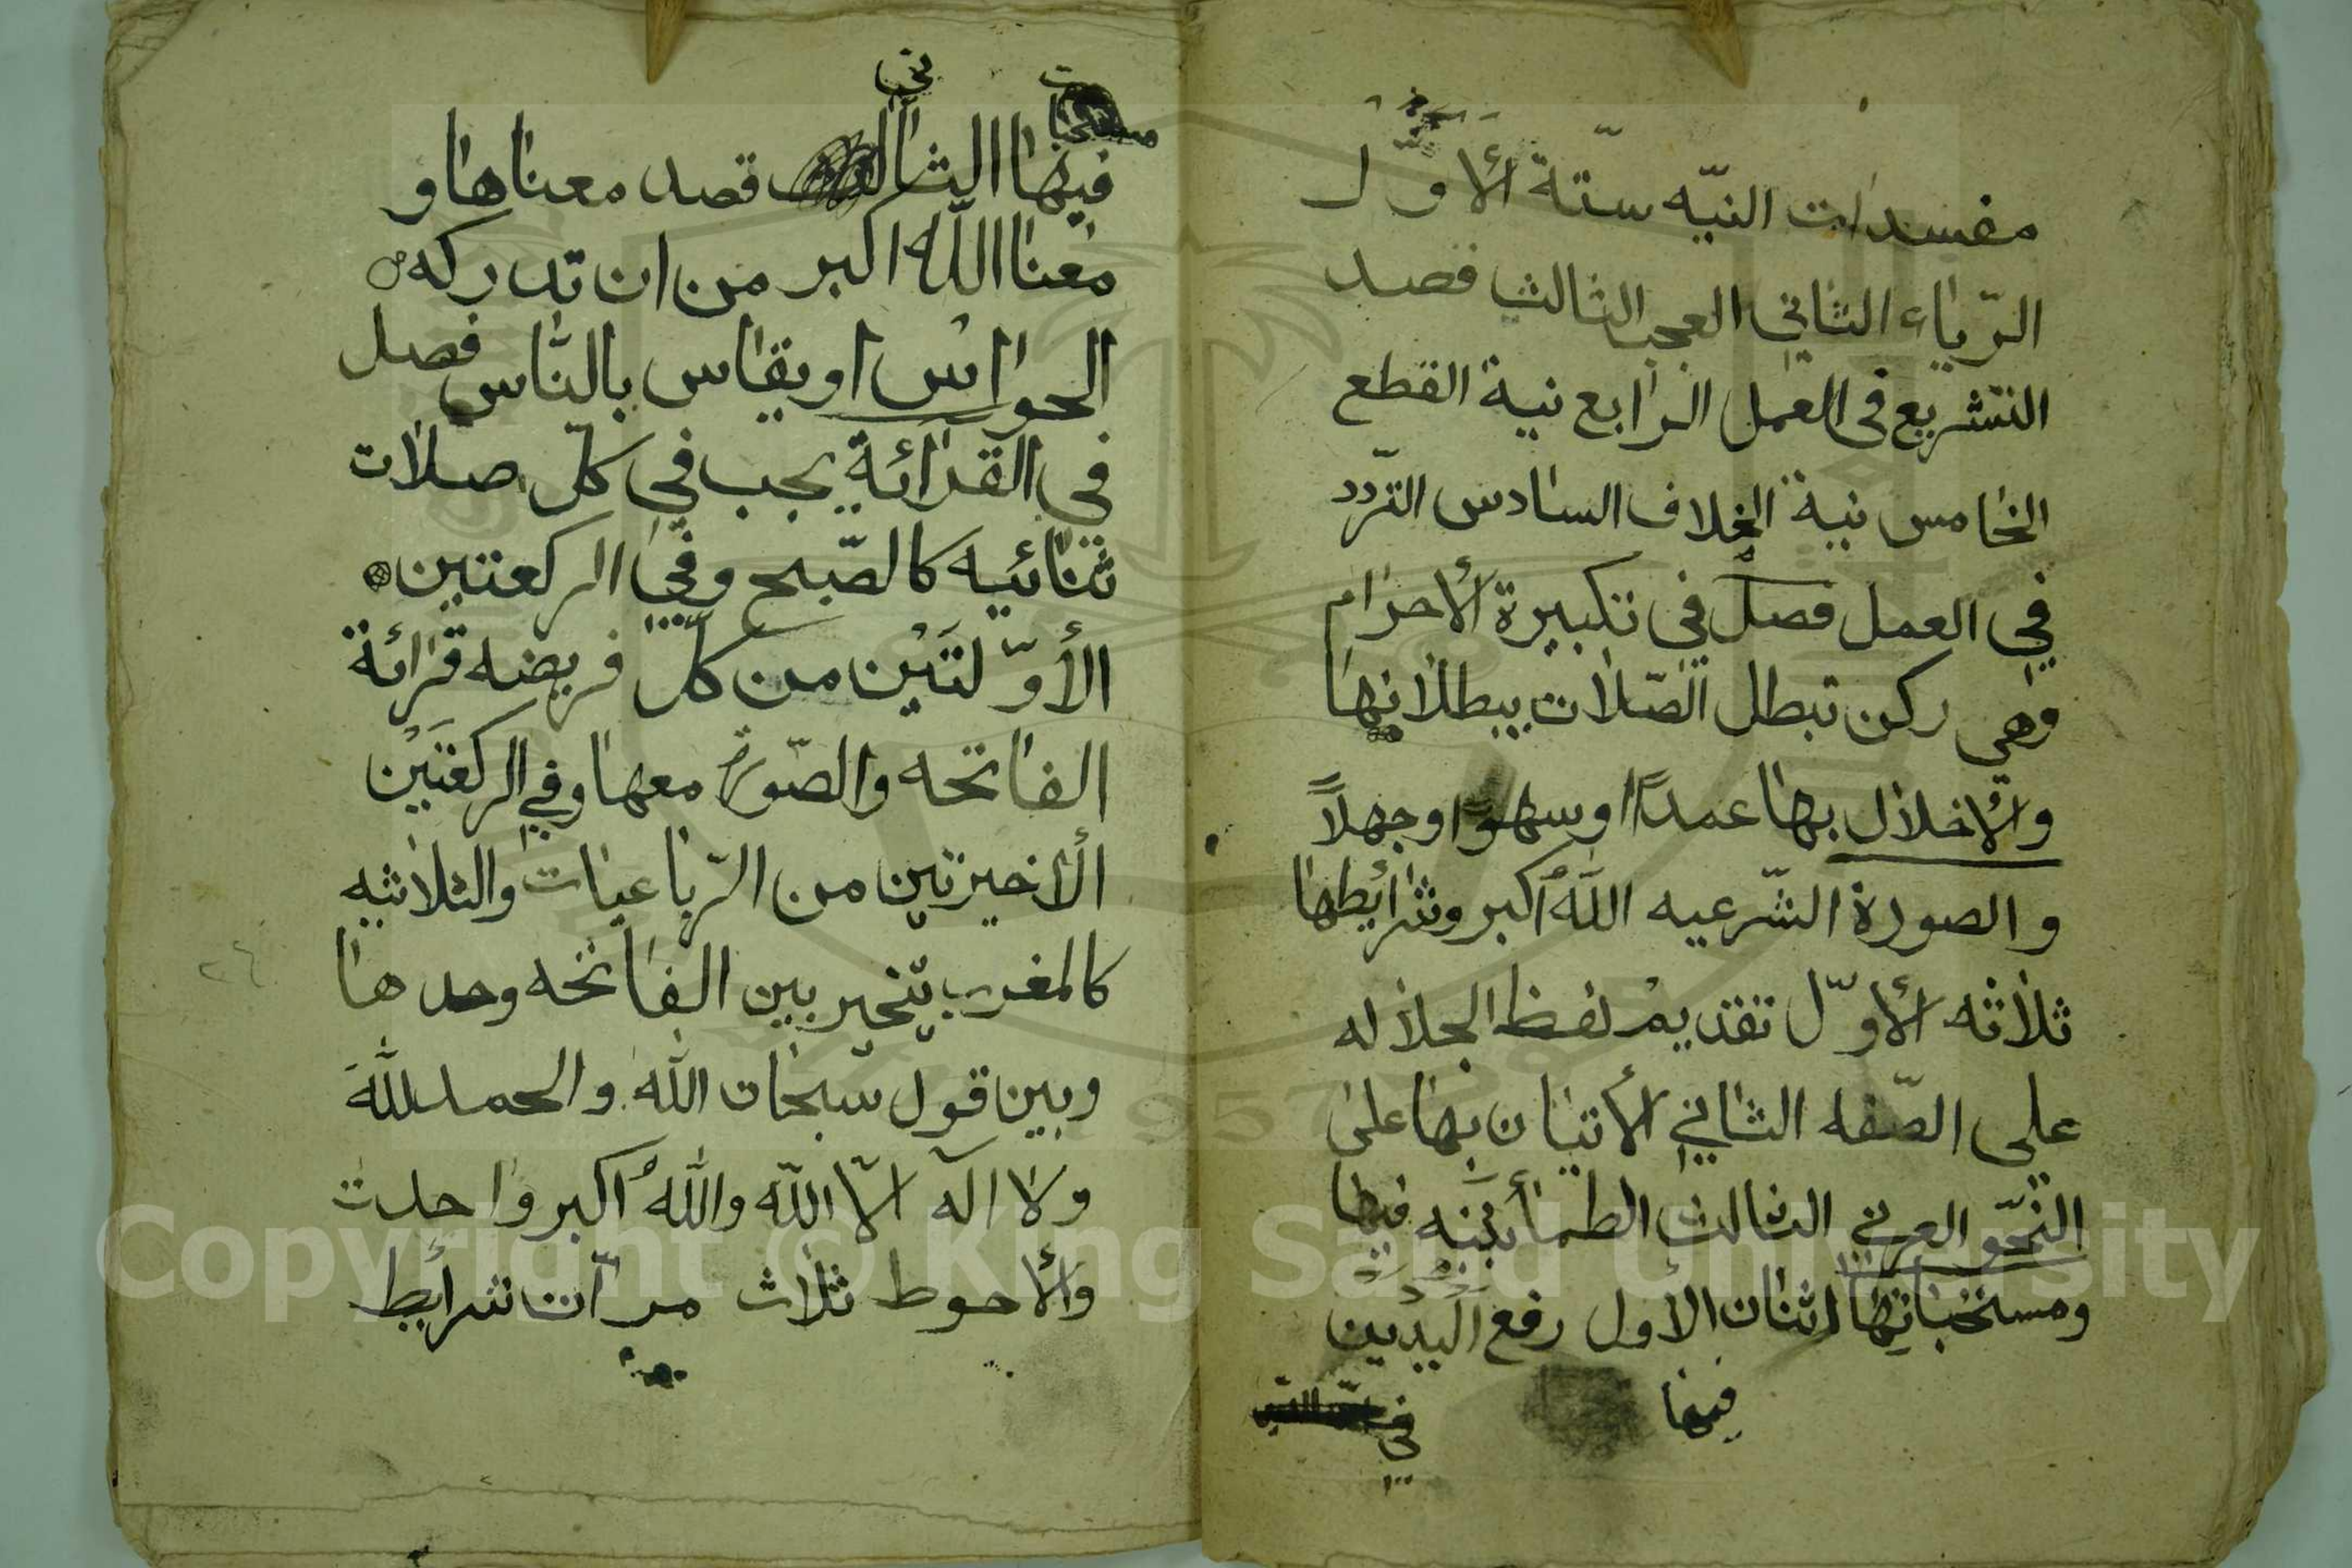 مفسدات النيّه ستّة الأوّل
الرّياء الثاني العجب الثالث قصد
التشريع في العمل الرابع نية القطع
الخامس نية الخلاف السادس التّردد
في العمل فصل في تكبيرة الأحرام
وهي ركن تبطل الصّلات ببطلانها
والأخلال بها عمدًا او سهوًا او جهلاً
والصورة الشّرعيه اللّه أكبر وشرائطها
ثلاثه الأوّل تقديم لفظ الجلاله
على الصّفه الثاني الأتيان بها على
النّحو العربي الثالث الطمأنينه فيها
ومستحباتها اثنان الأول رفع اليدين
فيها
في
مستحبات
ني
فيها الثا قصد معناها و
معنا اللّه اكبر من ان تدركه
الحواس او يقاس بالنّاس فصل
في القرائة يجب في كلّ صلات
ثنائيه كالصّبح وفي الركعتين
الأوّلتَيْن من كلّ فريضه قرائة
الفاتحه والصّورة معها وفي الركعتَيْن
الأخيرتين من الرّباعيات والثلاثيه
كالمغرب يتخير بين الفاتحه وحدها
وبين قول سبحان اللّه والحمد للّه
ولا اله الّا اللّه واللّهُ أكبر واحدت
والأحوط ثلاث مرّات شرائط
٢٤
Copyright © King Saud University
1957